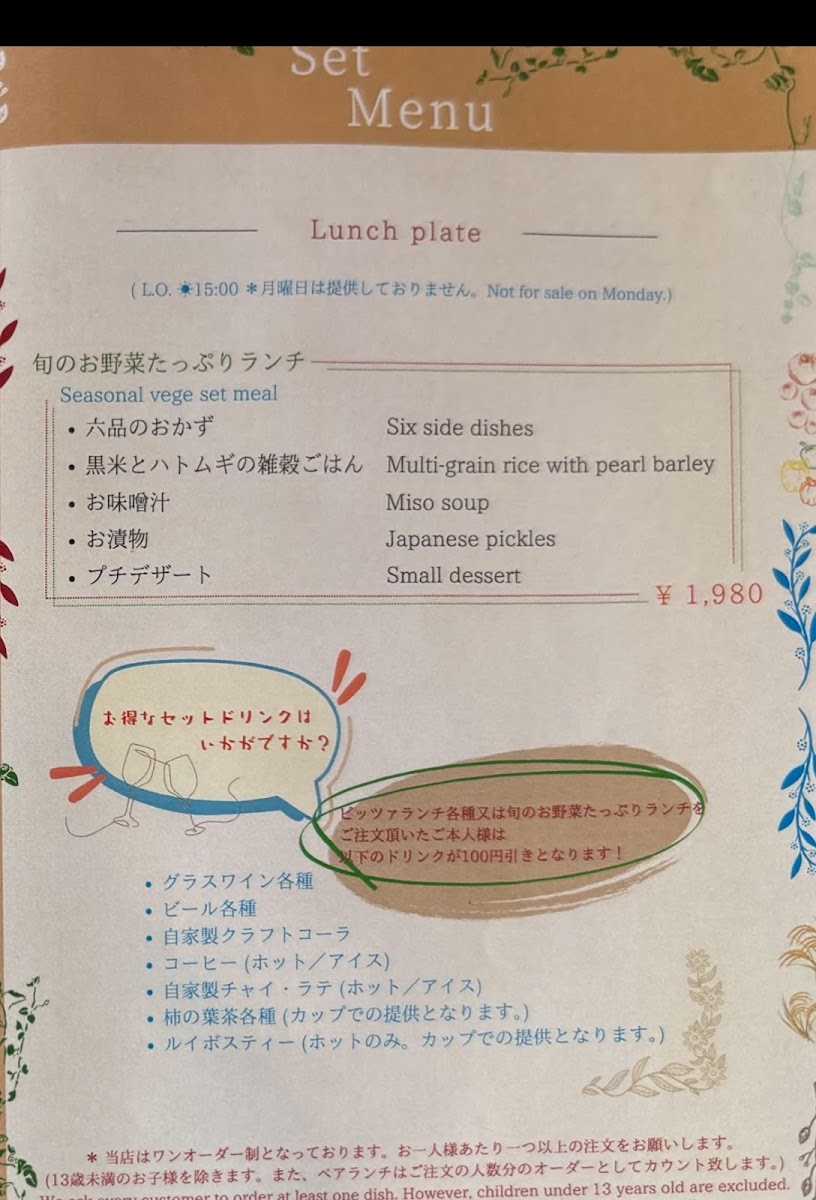 Set
Menu
Lunch plate
( L.O. ☀15:00 ＊月曜日は提供しておりません。Not for sale on Monday.)
旬のお野菜たっぷりランチ
Seasonal vege set meal
• 六品のおかず Six side dishes
• 黒米とハトムギの雑穀ごはん Multi-grain rice with pearl barley
• お味噌汁 Miso soup
• お漬物 Japanese pickles
• プチデザート Small dessert
¥ 1,980
お得なセットドリンクは
いかがですか?
ピッツァランチ各種又は旬のお野菜たっぷりランチを
ご注文頂いたご本人様は
以下のドリンクが100円引きとなります！
• グラスワイン各種
• ビール各種
• 自家製クラフトコーラ
• コーヒー (ホット／アイス)
• 自家製チャイ・ラテ (ホット／アイス)
• 柿の葉茶各種 (カップでの提供となります。)
• ルイボスティー (ホットのみ。カップでの提供となります。)
＊ 当店はワンオーダー制となっております。お一人様あたり一つ以上の注文をお願いします。
(13歳未満のお子様を除きます。また、ペアランチはご注文の人数分のオーダーとしてカウント致します。)
We ask every customer to order at least one dish. However, children under 13 years old are excluded.